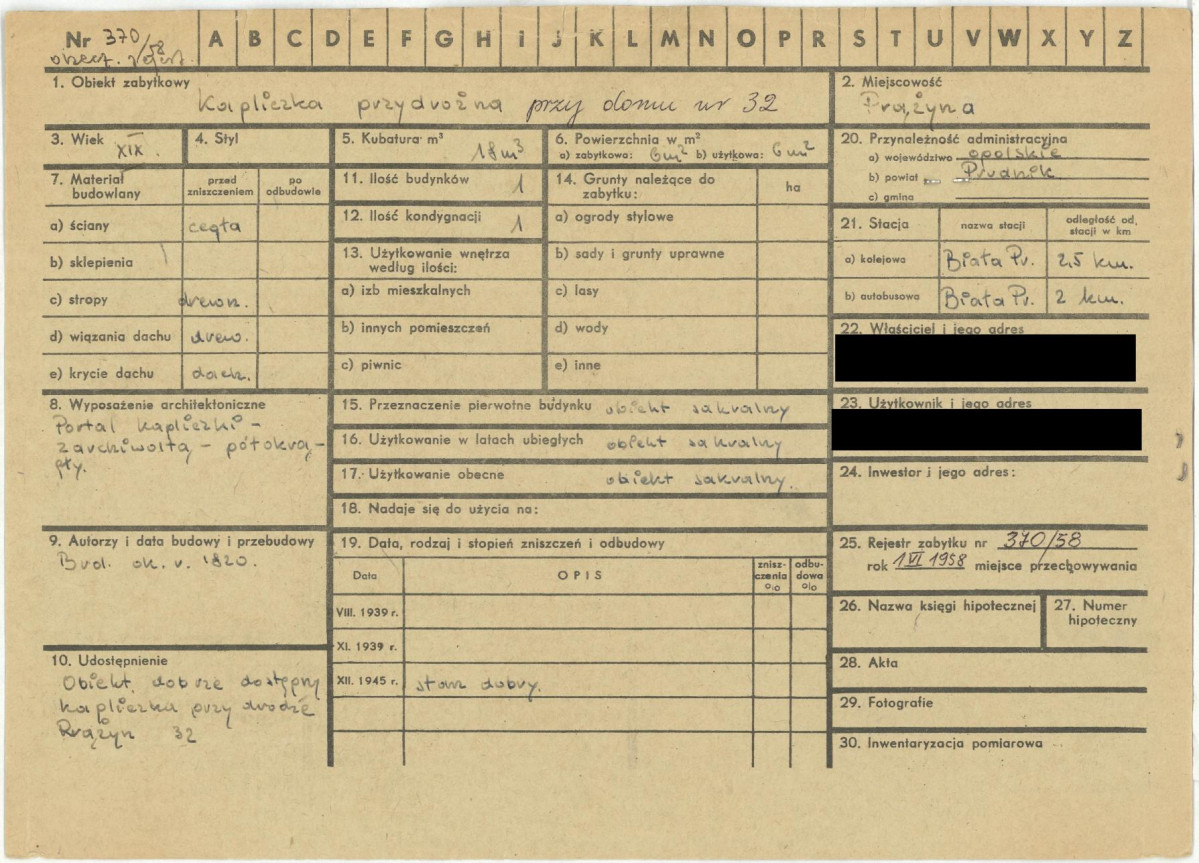 Nr 370/58
obecn. rejest.
A B C D E F G H I J K L M N O P R S T U V W X Y Z
1. Obiekt zabytkowy
Kapliczka przydrożna przy domu nr 32
2. Miejscowość
Prążyna
3. Wiek XIX.
4. Styl
5. Kubatura m³ 18 m³
6. Powierzchnia w m²
a) zabytkowa: 6 m² b) użytkowa: 6 m²
20. Przynależność administracyjna
a) województwo opolskie
b) powiat Prudnik
c) gmina
7. Materiał budowlany
przed zniszczeniem
po odbudowie
a) ściany cegła
b) sklepienia
c) stropy drewn.
d) wiązania dachu drew.
e) krycie dachu dach.
11. Ilość budynków 1
12. Ilość kondygnacji 1
13. Użytkowanie wnętrza według ilości:
a) izb mieszkalnych
b) innych pomieszczeń
c) piwnic
14. Grunty należące do zabytku:
ha
a) ogrody stylowe
b) sady i grunty uprawne
c) lasy
d) wody
e) inne
21. Stacja
nazwa stacji
odległość od stacji w km
a) kolejowa Biała Pr. 2,5 km.
b) autobusowa Biała Pr. 2 km.
22. Właściciel i jego adres
23. Użytkownik i jego adres
24. Inwestor i jego adres:
8. Wyposażenie architektoniczne
Portal kapliczki -
z archiwoltą - półokrą-
gły.
15. Przeznaczenie pierwotne budynku obiekt sakralny
16. Użytkowanie w latach ubiegłych obiekt sakralny
17. Użytkowanie obecne obiekt sakralny.
18. Nadaje się do użycia na:
9. Autorzy i data budowy i przebudowy
Bud. ok. r. 1820.
19. Data, rodzaj i stopień zniszczeń i odbudowy
Data
OPIS
zniszczenia o/o
odbudowa o/o
VIII. 1939 r.
XI. 1939 r.
XII. 1945 r. stan dobry.
10. Udostępnienie
Obiekt dobrze dostępny
Kapliczka przy drodze
Prążyn 32
25. Rejestr zabytku nr 370/58
rok 1 VI 1958 miejsce przechowywania
26. Nazwa księgi hipotecznej
27. Numer hipoteczny
28. Akta
29. Fotografie
30. Inwentaryzacja pomiarowa